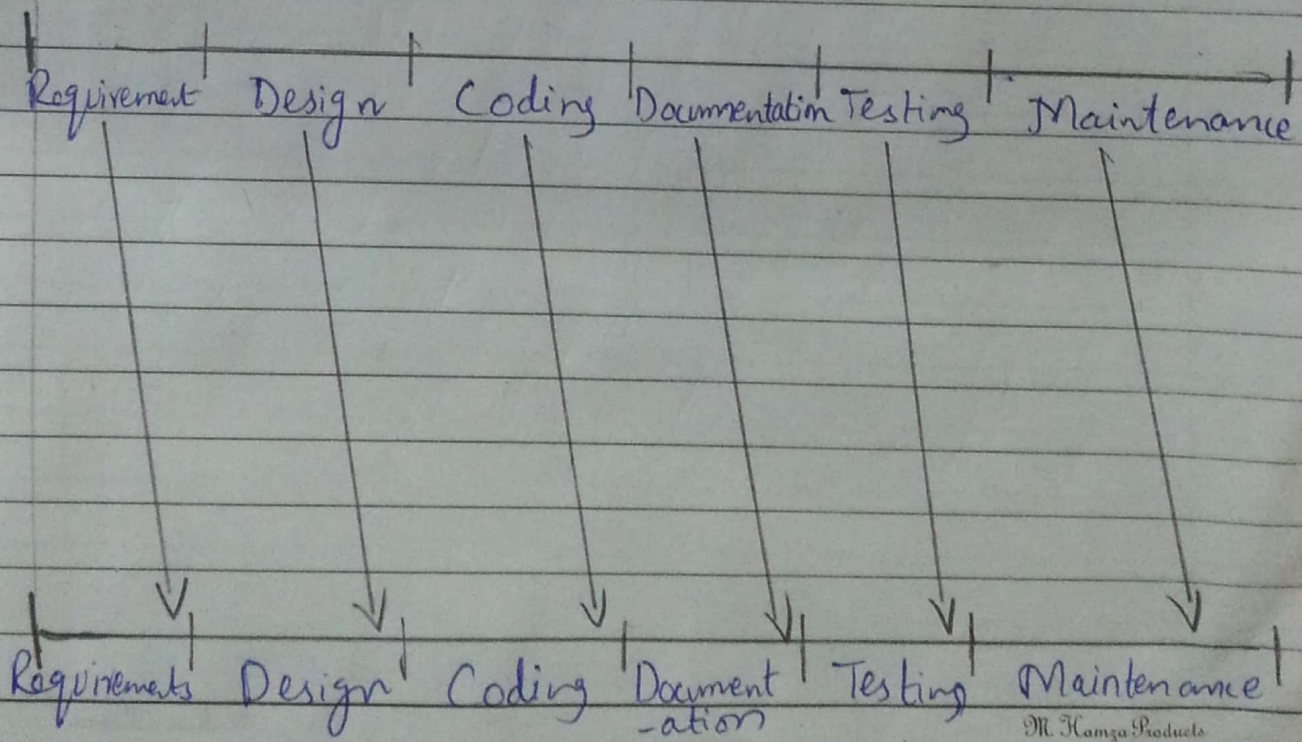 Requirement Design Coding Documentation Testing Maintenance
Requirements Design Coding Document Testing Maintenance
-ation
M. Hamza Products